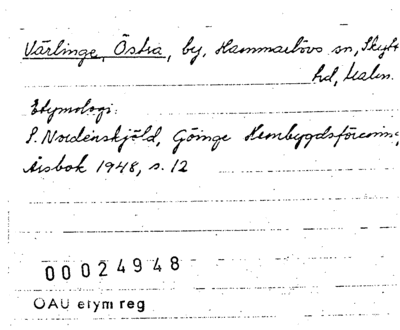 Värlinge, Östra, by, Hammarlövs sn, Skytts
hd, Malm.
Etymologi:
S. Nordenskjöld, Göinge Hembygdsförening
Årsbok 1948, s. 12
00024948
OAU etym reg